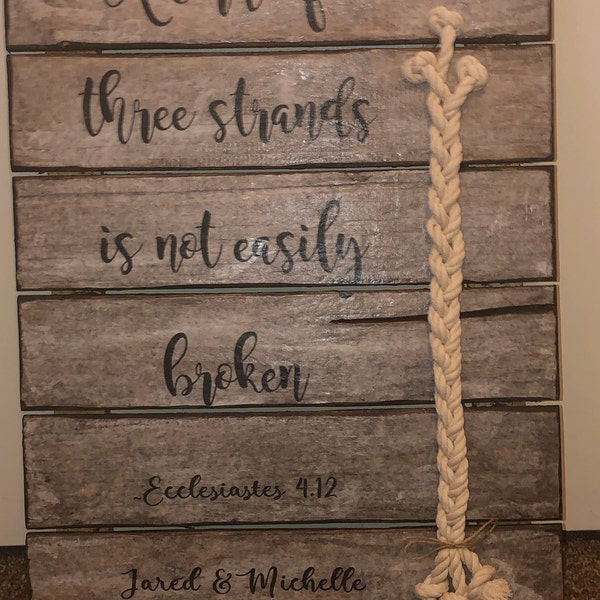 three strands
is not easily
broken
~Ecclesiastes 4:12
Jared & Michelle